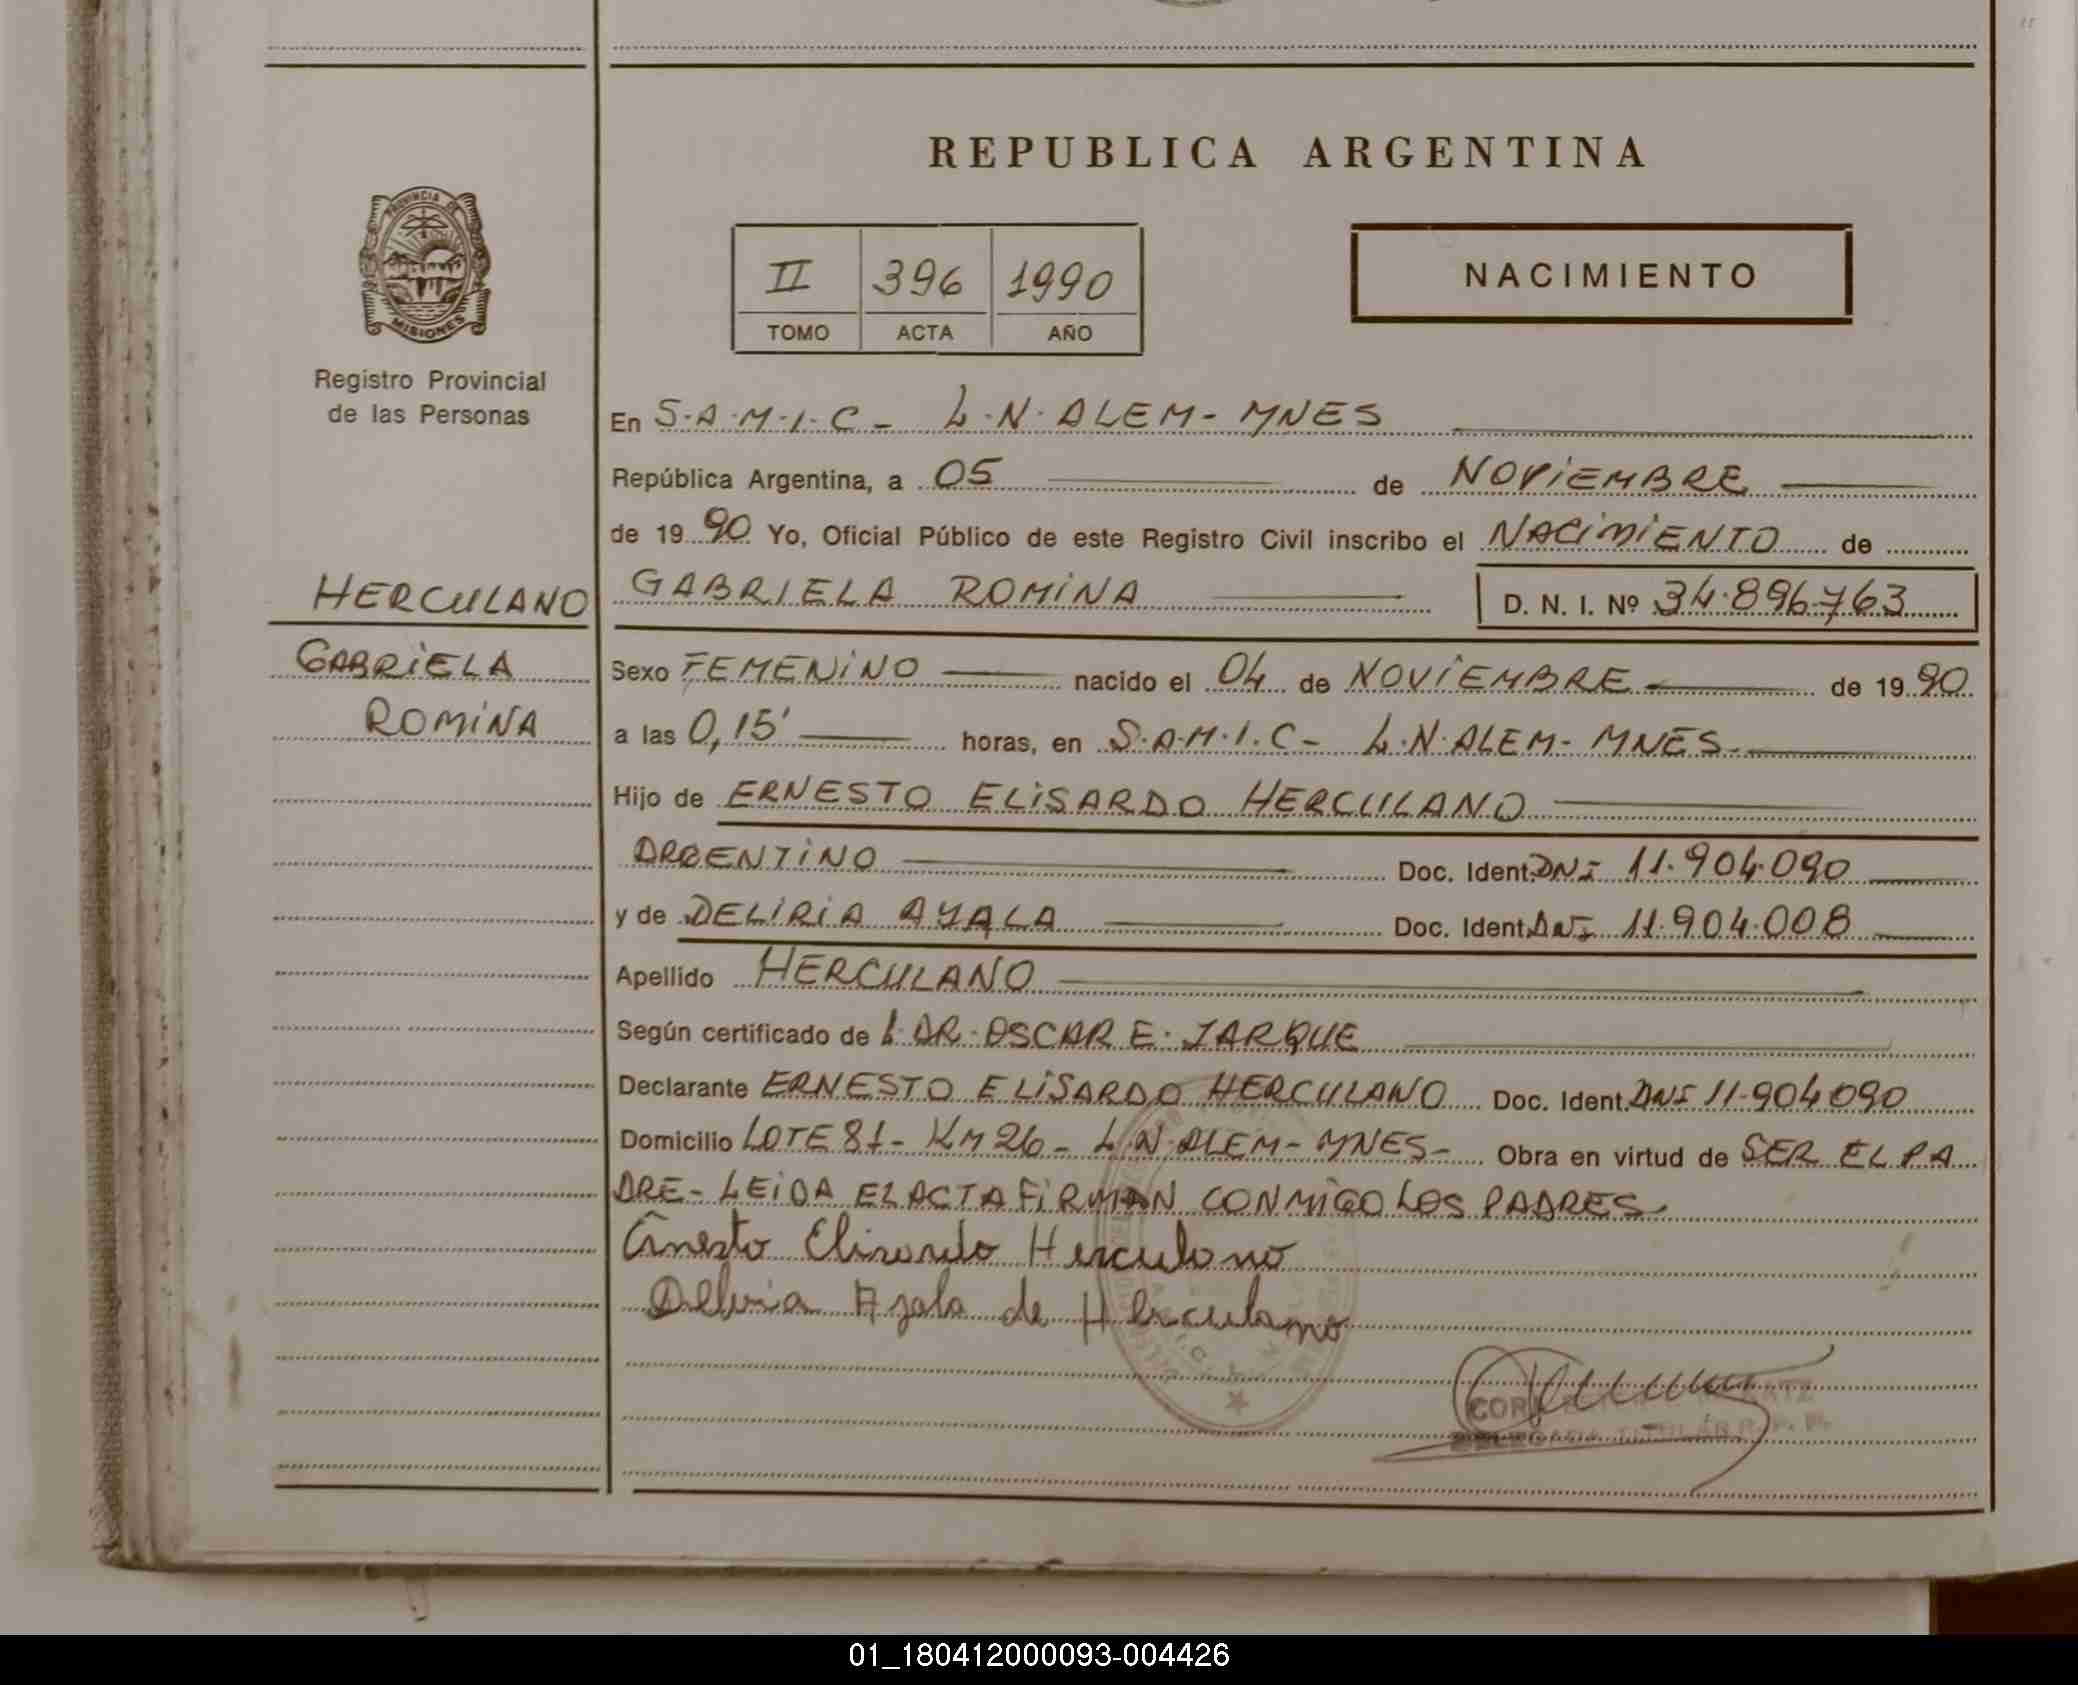 REPUBLICA ARGENTINA
PROVINCIA DE
MISIONES
Registro Provincial
de las Personas
II 396 1990
TOMO ACTA AÑO
NACIMIENTO
En S.A.M.I.C - L.N. ALEM - MNES
República Argentina, a 05 de NOVIEMBRE
de 19 90 Yo, Oficial Público de este Registro Civil inscribo el NACIMIENTO de
HERCULANO
GABRIELA
ROMINA
GABRIELA ROMINA D. N. I. Nº 34.896.763
Sexo FEMENINO nacido el 04 de NOVIEMBRE de 19 90
a las 0,15' horas, en S.A.M.I.C - L.N. ALEM - MNES
Hijo de ERNESTO ELISARDO HERCULANO
ARGENTINO Doc. Ident. DNI 11.904.090
y de DELIRIA AYALA Doc. Ident. DNI 11.904.008
Apellido HERCULANO
Según certificado de L. DR. OSCAR E. JARQUE
Declarante ERNESTO ELISARDO HERCULANO Doc. Ident. DNI 11.904090
Domicilio LOTE 81 - KM 26 - L.N. ALEM - MNES - Obra en virtud de SER EL PA
DRE - LEIDA EL ACTA FIRMAN CONMIGO LOS PADRES
Ernesto Elisardo Herculano
Ayala de Herculano
01_180412000093-004426